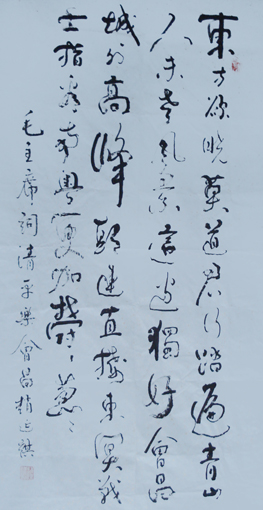 東方欲晓莫道君行踏遍青山
人未老風景這邊獨好會昌
城外高峰顛連直接東溟戰
士指看南粤更加鬱〻葱〻
毛主席詞清平樂會昌